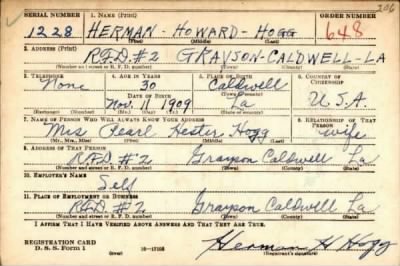 206
SERIAL NUMBER 1. NAME (Print) ORDER NUMBER
1228 HERMAN - HOWARD - HOGG 648
(First) (Middle) (Last)
2. ADDRESS (Print)
R.F.D. #2 GRAYSON-CALDWELL-LA
(Number and street or R. F. D. number) (Town) (County) (State)
3. TELEPHONE 4. AGE IN YEARS 5. PLACE OF BIRTH 6. COUNTRY OF CITIZENSHIP
None 30 Caldwell
DATE OF BIRTH (Town or county)
Nov. 11 1909 La U.S.A.
(Exchange) (No.) (Mo.) (Day) (Yr.) (State or country)
7. NAME OF PERSON WHO WILL ALWAYS KNOW YOUR ADDRESS 8. RELATIONSHIP OF THAT PERSON
Mrs Pearl Hester Hogg wife
(Mr., Mrs., Miss) (First) (Middle) (Last)
9. ADDRESS OF THAT PERSON
R.F.D. #2 Grayson Caldwell La
(Number and street or R. F. D. number) (Town) (County) (State)
10. EMPLOYER'S NAME
Self
11. PLACE OF EMPLOYMENT OR BUSINESS
R.F.D. #2 Grayson Caldwell La
(Number and street or R. F. D. number) (Town) (County) (State)
I AFFIRM THAT I HAVE VERIFIED ABOVE ANSWERS AND THAT THEY ARE TRUE.
REGISTRATION CARD
D. S. S. Form 1 16-17105 Herman H Hogg
(Registrant's signature)